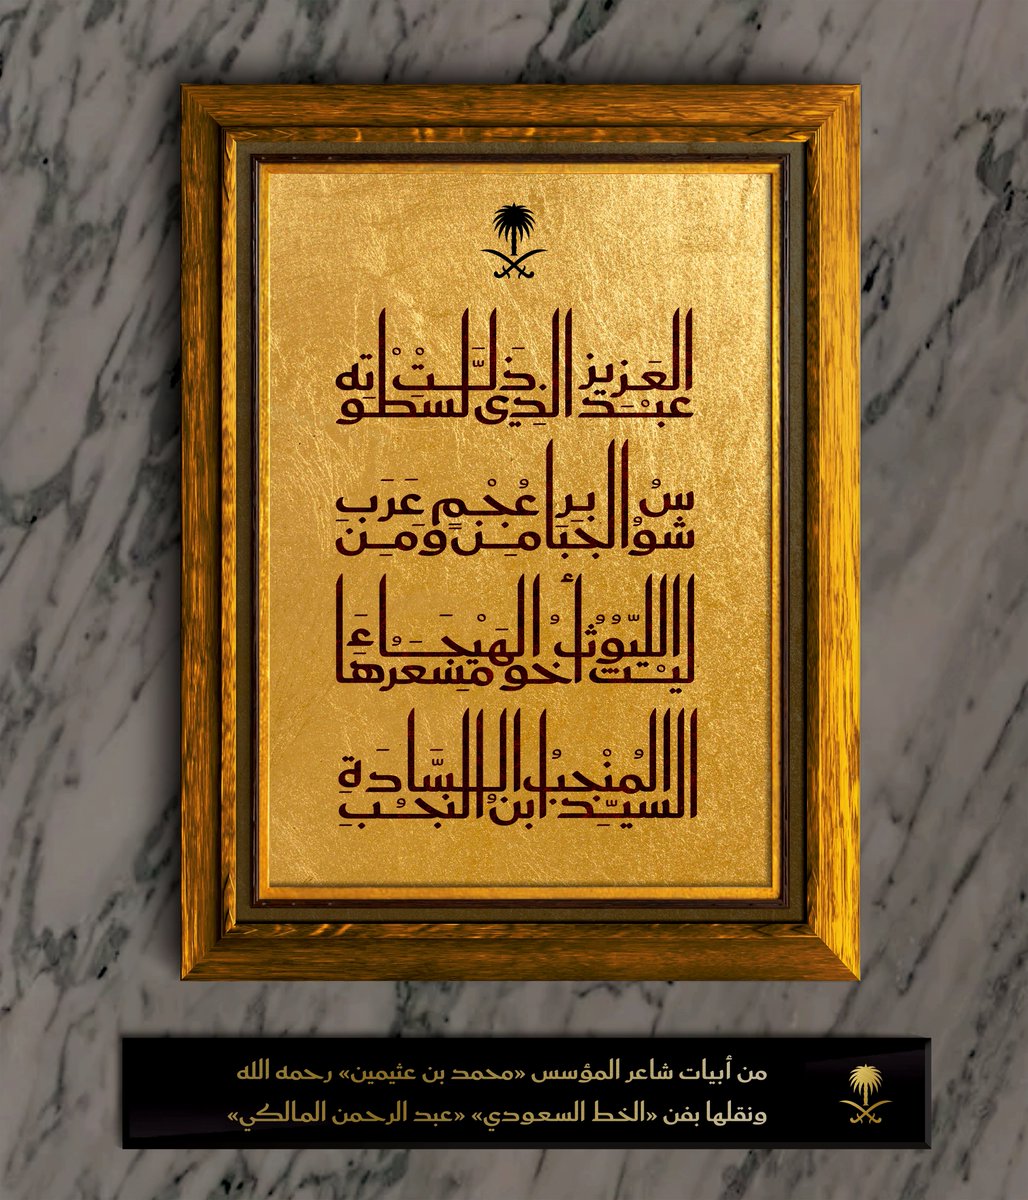 عبْدَ العَزيز الذِي ذَلَّتْ لسَطْوَتِه
شُوسُ الجَبَابِرِ مِنْ عُجْمٍ وَمِنْ عَرَبِ
ليْثُ الليُوُثِ أخُو الهَيْجَاءَ مِسْعَرُها
السيِّدُ المُنْجِبُ ابنُ السَّادَةِ النجُبِ
من أبيات شاعر المؤسس «محمد بن عثيمين» رحمه الله
ونقلها بفن «الخط السعودي» «عبد الرحمن المالكي»